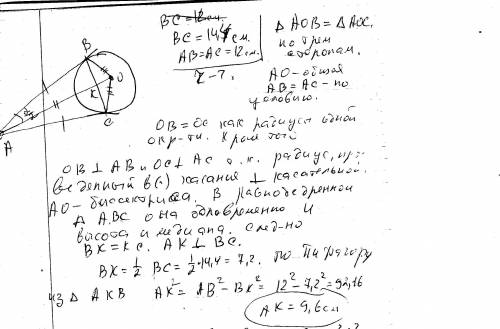 BC = 14,4 см.
AB = AC = 12 см.
r - ?
Δ AOB = Δ AOC.
по трем
сторонам.
AO - общая
AB = AC - по
условию.
B
O
K
C
A
OB = OC как радиусы одной
окр-ти. Кроме того
OB ⊥ AB и OC ⊥ AC т.к. радиус, про-
веденный в (·) касания ⊥ касательной.
AO - биссектриса. В равнобедренном
Δ ABC она одновременно и
высота и медиана. след-но
BK = KC. AK ⊥ BC.
BK = 1/2 BC = 1/2 · 14,4 = 7,2. по Пифагору
из Δ AKB AK² = AB² - BK² = 12² - 7,2² = 92,16
AK = 9,6 см